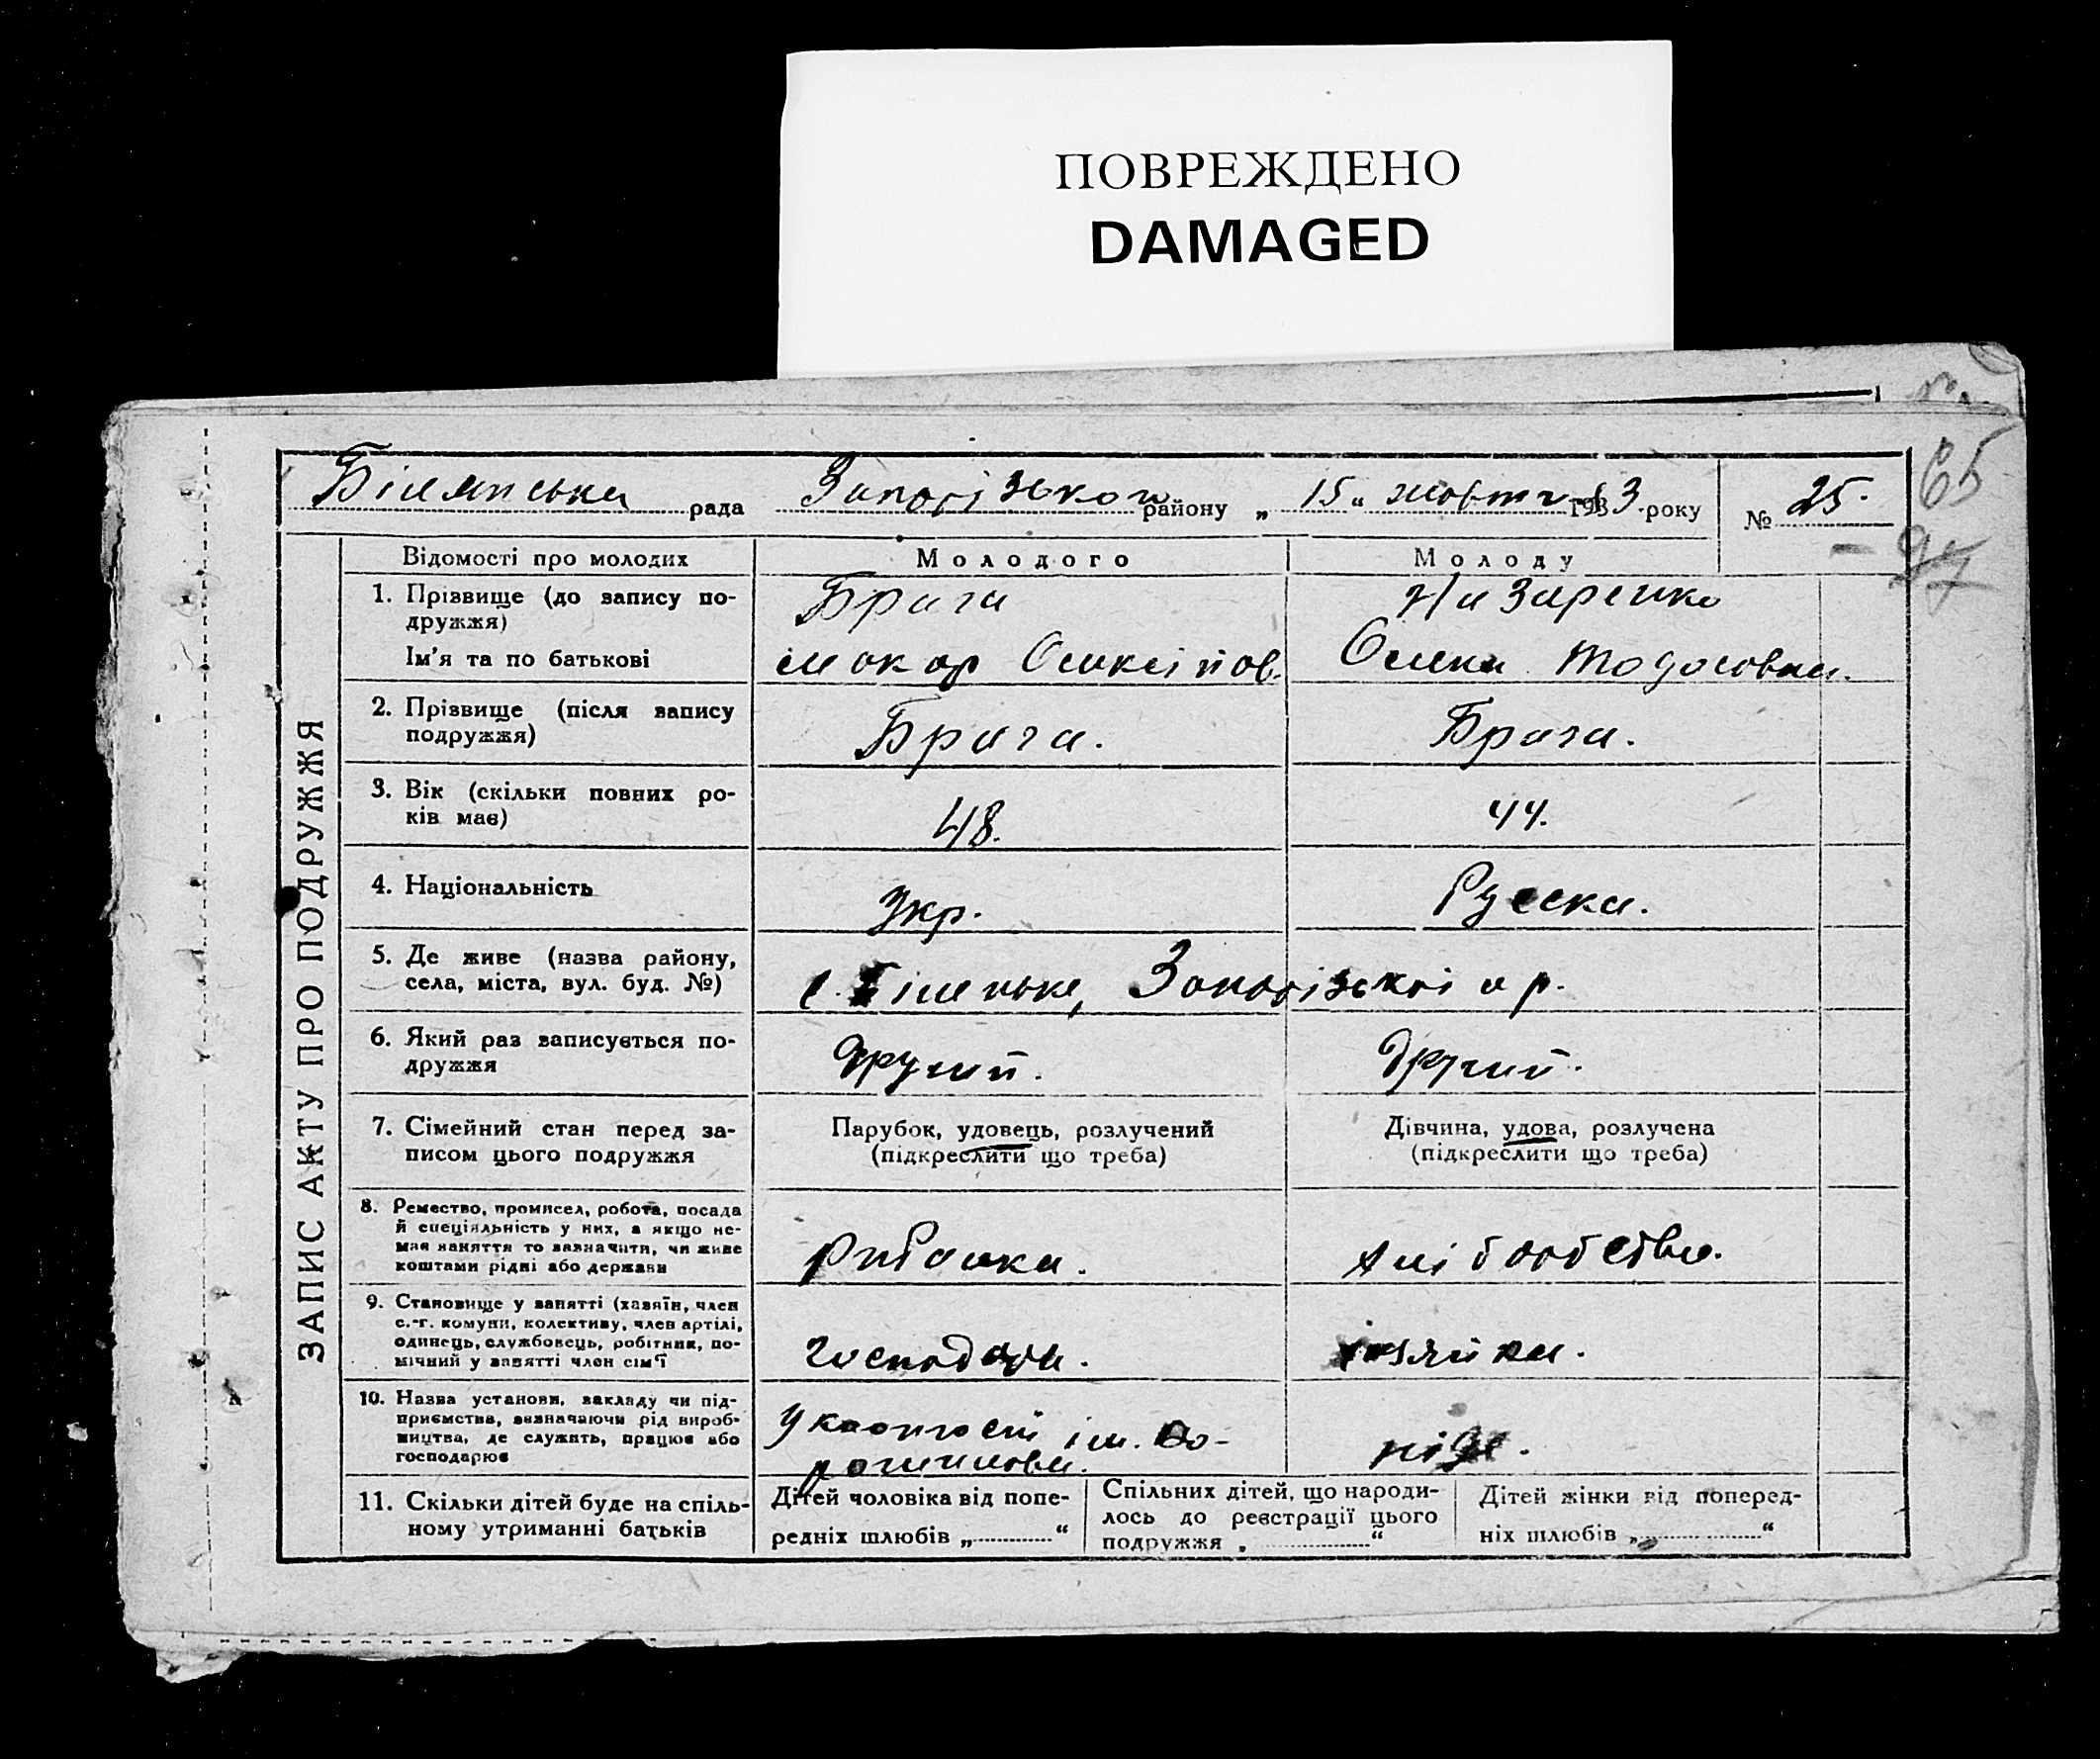 ПОВРЕЖДЕНО
DAMAGED
65
Білянська рада Запорізького району „15“ жовтня 1933 року № 25.
97
ЗАПИС АКТУ ПРО ПОДРУЖЖЯ
Відомості про молодих Молодого Молоду
1. Прізвище (до запису по-
дружжя) Брага Назаренко
Ім'я та по батькові Макар Олексійов. Олена Тодосовна.
2. Прізвище (після запису
подружжя) Брага. Брага.
3. Вік (скільки повних ро-
ків має) 48. 44.
4. Національність Укр. Русска.
5. Де живе (назва району,
села, міста, вул. буд. №) с. Біленьке, Запорізької
6. Який раз записується по-
дружжя Другий. Другий.
7. Сімейний стан перед за-
писом цього подружжя
Парубок, удовець, розлучений
(підкреслити що треба)
Дівчина, удова, розлучена
(підкреслити що треба)
8. Ремество, промисел, робота, посада
й спеціяльність у них, а якщо не-
має заняття то зазначити, чи живе
коштами рідні або держави
Рибалка. хліборобство.
9. Становище у занятті (хазяїн, член
с.-г. комуни, колективу, член артілі,
одинець, службовець, робітник, по-
мічний у занятті член сім'ї
господарь. хазяйка.
10. Назва установи, закладу чи під-
приємства, зазначаючи рід вироб-
ництва, де служить, працює або
господарює
У колгоспі ім. Во-
рошилова. ніде.
11. Скільки дітей буде на спіль-
ному утриманні батьків
Дітей чоловіка від попе-
редніх шлюбів „ “
Спільних дітей, що народи-
лось до реєстрації цього
подружжя „ “
Дітей жінки від поперед-
ніх шлюбів „ “